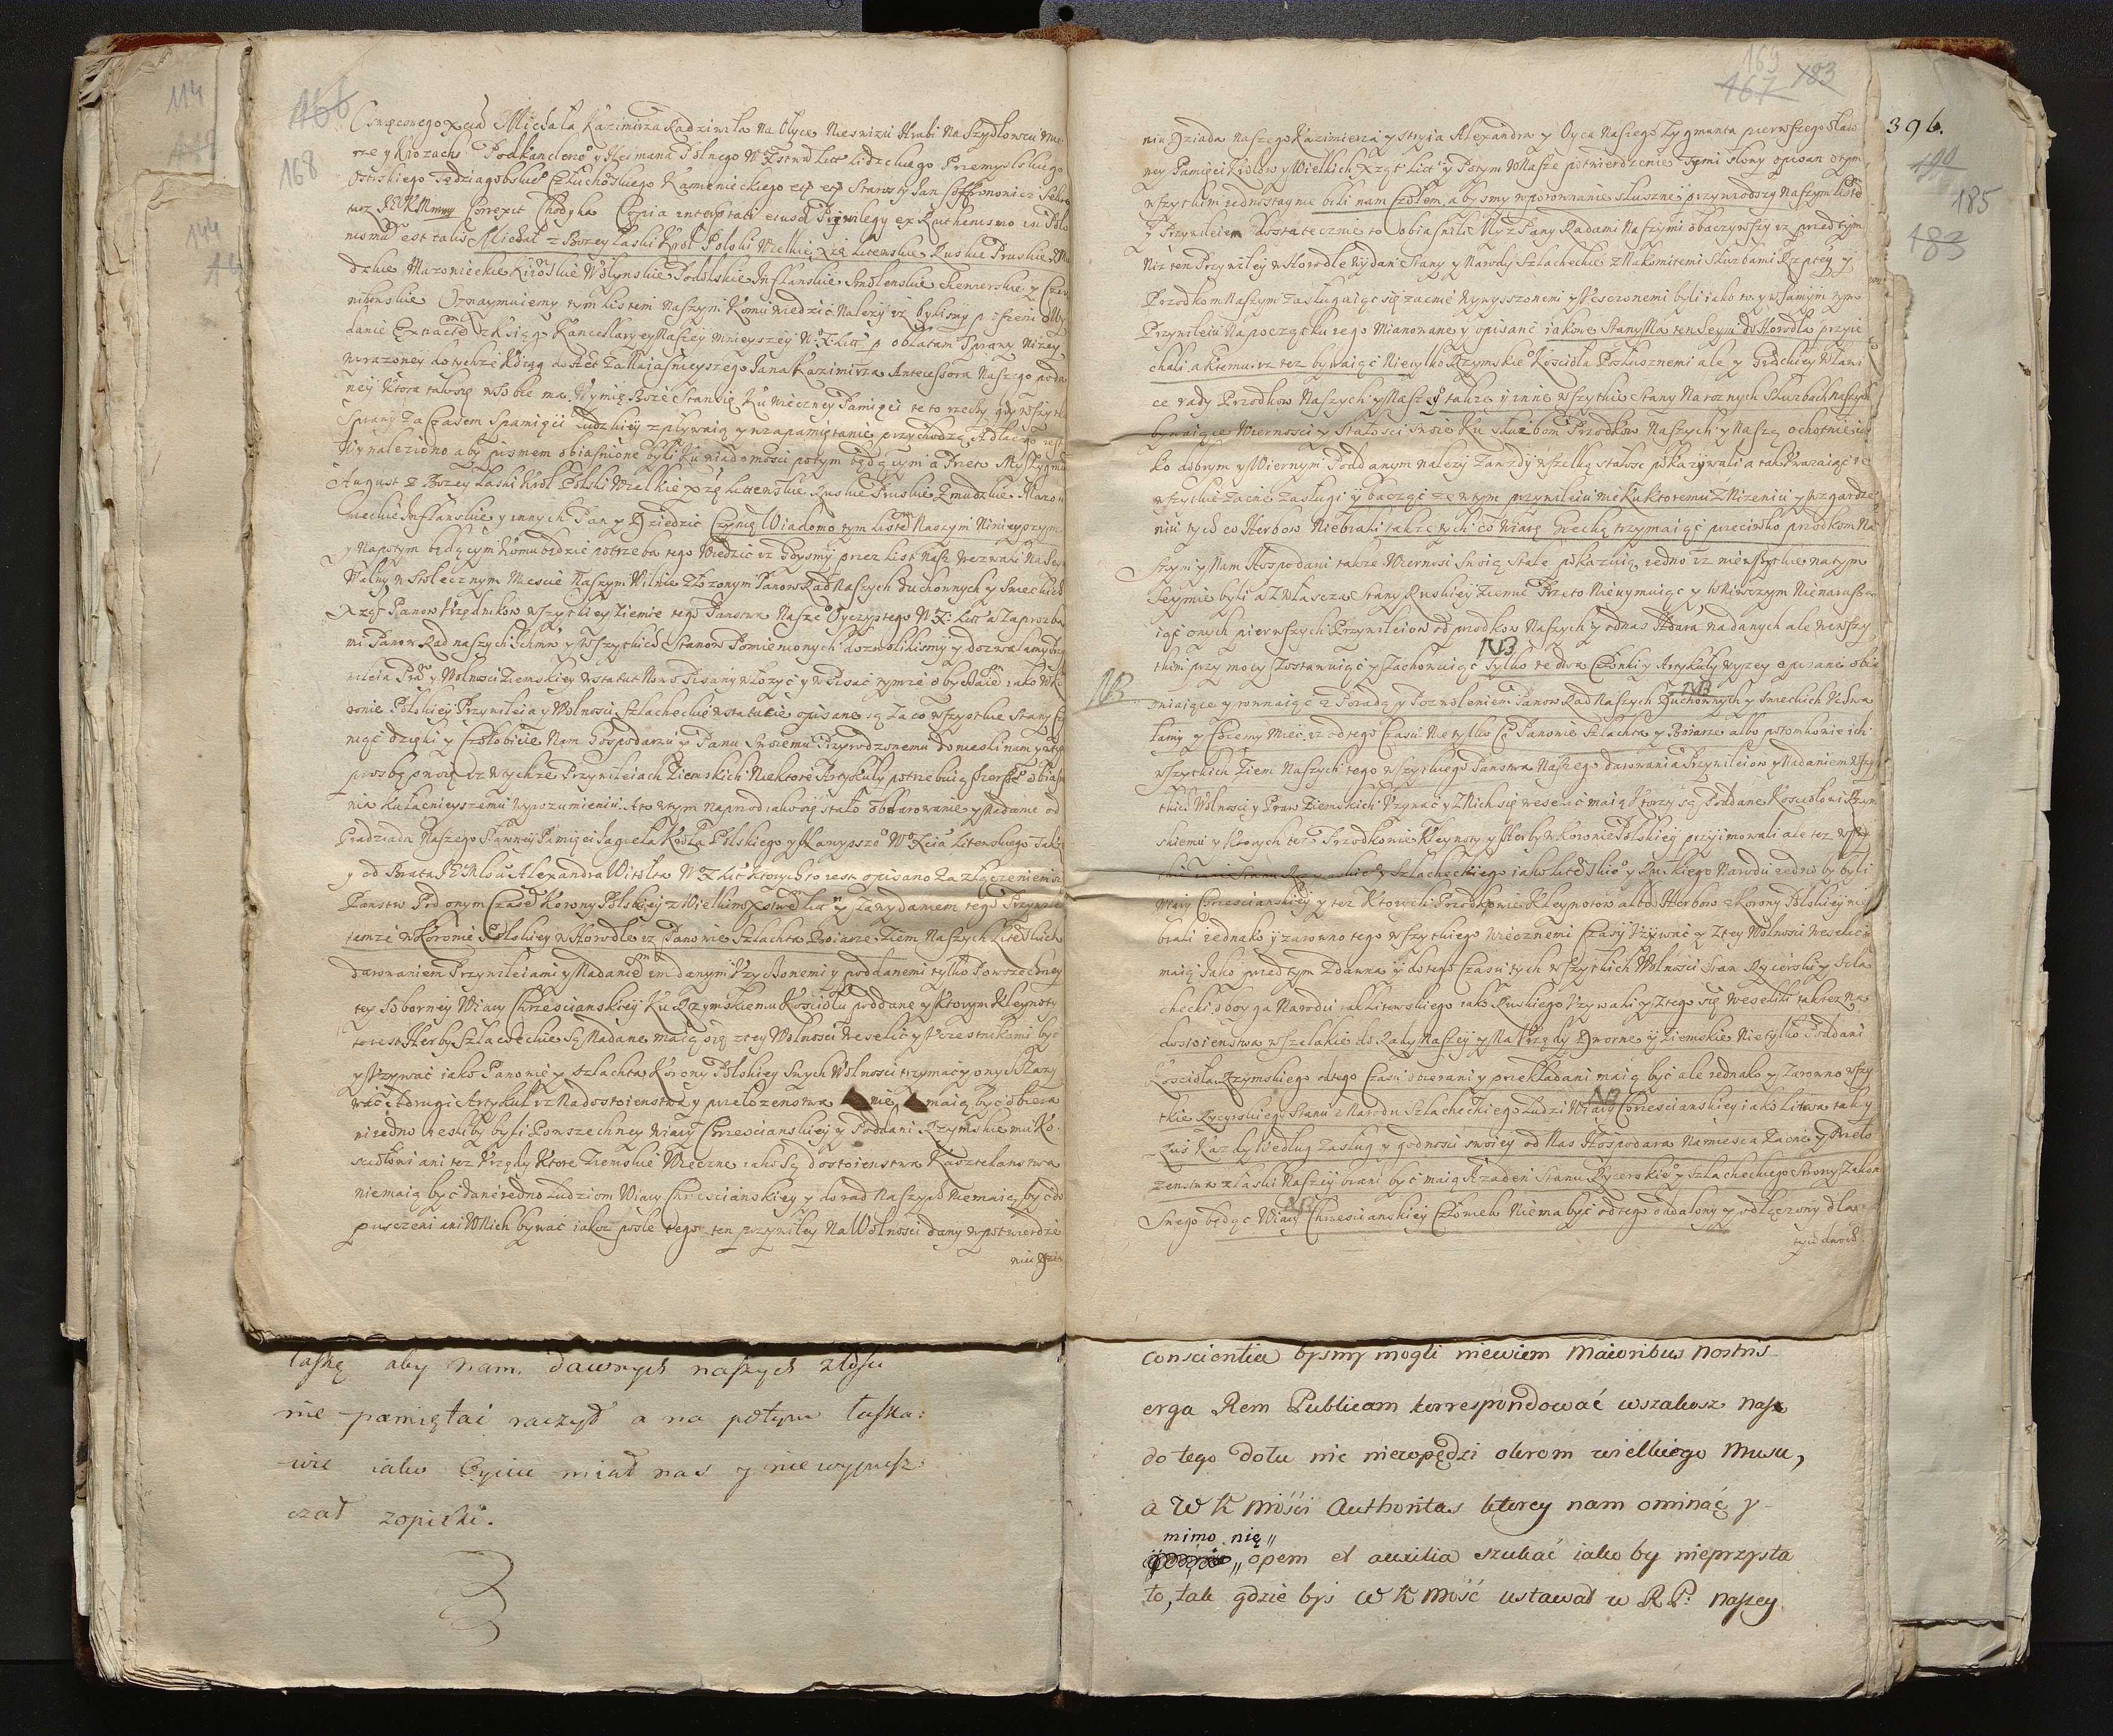 166
168
Oswięconego Xcia Michała Kazimirza Radziwiła na Olyce Nieswiżu Hrabi na Szydłowcu
rze y Krozach Podkanclerō y Hetmana Polnego WXstwa Litt Lidzkiego Przemyslskiego
Ostrskiego Człuchowskiego Kamienieckiego Starosty Jan
tarz JEKMmscy Correxit Chodyka Copia Privilegy ex Ruthenismo in Polo
nismū est talis Michał z Bozey Łaski Krol Polski Wielkie Xżę Litewskie Ruskie Pruskie
dzkie Mazowieckie Kijowskie Wołynskie Podolskie Inflanskie Smolenskie Siewierskie y Czer
nihowskie Oznaymuiemy tym listem naszym komu wiedzić nalezy iz bylismy proszeni o Wy
danie Extractu z Ksiąg Kancellaryey Naszey mnieyszey W X Litt p oblatam Sprawy nizey
wyrazoney do tychze Ksiąg do Act Zaniaiasnieyszego Jana Kazimirza Antecessora Naszego poda
ney Ktora tak się w sobie ma. W Imię Boże Stansię Ku wieczney Pamięci te to rzeczy gdy wszytkie
Sprawy za Czasem z pamięci Ludzkiey zpływaią y w zapamiętanie przychodzą Adlaczego iest
Wynaleziono aby pismem obiasnione byli Ku wiadomosci potym będącym a Przeto My Zygmu
August z Bozey Łaski Krol Polski Wielkie Xżę Littewskie Ruskie Pruskie Zmudzkie Mazo
wieckie Inflanskie y innych Pan y Dziedzic Czynię Wiadomo tym listē Naszym Ninieyszym
y Napotym będącym komu będzie potrzeba tego wiedzić iz Gdysmy przez list Nasz wezwali Na Seym
Walny w Stołecznym Miescie Naszym Wilnie złozonym Panow Rad Naszych duchownych y Swieckich
Xżąt Panow Urzędnikow wszytkiey Ziemie tego Panstwa Naszō Oyczystego W X: Litt a Zaprozba
mi Panow Rad naszych Ichmw y Wszytkich Stanow Pomienionych dozwolilismy y dozwalamy Przy
wileia Praw y Wolnosci Ziemskiey w statut Nowo Pisany włozyć y wPisać tymze obyczaiē iako w Ko
ronie Polskiey Przywileia y Wolnosci Szlacheckie w statucie opisane są Za co wszystkie Stany Czy
niąć dzięki y Czołobicie Nam Gospodarzu y Panu Swoiemu Przyrodzonemu doniesli nam y
prosbę swoię iz w tychze Przywileiach Ziemskich Niektore Artykuły potrzebuią szerszō obiasn
nia ku łacnieyszemu wyrozumieniu. A to w tym naprzod iako się stało obdarowanie y Nadanie od
Pradziada Naszego Sławney Pamięci Jagieła Krola Polskiego y Nawysszō W. Xcia Litewskiego Takze
y od Brata JEMsci Alexandra Witołta W X Litt Ktorych to iest opisano Za złączeniem się
Panstw Pod onym Czasē Korony Polskiey z Wielkim Xstwē Litt y za wydaniem tegō Przywile
tamze w Koronie Polskiey w Horodle iz Panowie Szlachta Boiarze Ziem Naszych Litēskich
darowaniem Przywileiami y Nadaniē im danymi Uzyskonemi y poddanemi tylko Powszechney
tey Soborney Wiary Chrzescianskiey Ku Rzymskiemu Kosciołu poddane y Ktorym Kleynoty
to iest Herby Szlacheckie są Nadane maią się z tey Wolnosci weselić y Uczestnikami byc
y Uzywać iako Panowie y szlachta Korony Polskiey swych Wolnosci trzymać y onych Uzy
wać A drugi Artykuł iz Na dostoienstwa y przełozenstwa nie maią być obiera
ni iedno iesliby byli Powszechney Wiary Chrzescianskiey y Poddani Rzymskiemu Ko:
sciołowi ani tez Urzędy Ktore Ziemskie Wieczne iako są dostoienstwa Kasztelanstwa
niemaią być dane iedno Ludziom Wiary Chrzescianskiey y do rad Naszych Niemaią być do
pusczeni ani w Nich bywać iakoz posle tego ten przywiley Na Wolnosci dany w potwierdze
niu Dzia
169
167 183
niu Dziada Naszego Kazimierza y stryia Alexandra y Oyca Naszego Zygmunta pierwszego Sław
ney Pamięci Krolow y Wielkich Xżąt Litt y Potym w Nasze potwierdzenie tymi słowy opisan o tym
wszytkim iednostaynie bili nam Czołem abysmy w porownanie słuszne przywiodszy Naszym listē
y Przywileiem Dostatecznie to obiasnili My z Pany Radami Naszymi obaczywszy iz przed tym
Niz ten Przywiley w Horodle Wydan Stany y Narody Szlacheckie z Nakomitemi Służbami Rzptey y
Przodkom Naszym zasługuiąc się zacnie wywysszonemi y Uczczonemi byli iako to y w samym tym
Przywileiu Na początku iego Mianowane y opisane iakowe Stany Na ten Seym do Horodła przyie
chali, a ktemu iz tez bywaiąć Nietylko Rzymskō Kosciola Posłusznemi ale y Grēckiey Wiary
ce rady Przodkow Naszych y Naszey takze y inne wszytkie Stany Na roznych Słuzbach Naszych
bywaiące Wiernosci y Stałosci swoie ku słuzbom Przodkow Naszych y Naszą ochotnie ia
ko dobrym y Wiernym Poddanym nalezy Zawzdy wszelką stałosc pokazywali a tak Uwazaiąć
wszytkie zacne zasługi y bacząc ze w tym przywileiu niektoremu Znizeniu y wzgardze
niu tych co Herbow Niebrali takze tych co Wiarę Grecką trzymaiąć przeciwko przodkom Na
szym y Nam Hospodaru takze Wiernosć Swoię stale pokazuią iedno iz niewszytkie na tym
Seymie byli a Zwłascza Stany Ruskiey Ziemie Przeto Nieuymuiąć y wNiwczym Nienarusza
iąć onych pierwszych Przywileiow od przodkow Naszych y od nas Hdara nadanych ale we wszy
tkim przy mocy Zostawuiąć y Zachowuiąć tylko te dwa Członki y Artykuły wyzey opisane obia
NB
NB
zniaiące y rownaiąć z Poradą y Pozwoleniem Panow Rad Naszych Duchownych y Swieckich Uchwa
NB
lamy y Chcemy Mieć iz od tego Czasu Nie tylko Ci Panowie Szlachta y Boiarze albo potomkowie ich
wszytkich Ziem Naszych tego wszytkiego Panstwa Naszego darowania Przywileiow y Nadaniem wszy
tkich Wolnosci y Praw Ziemskich Uzywać y z Nich się weselić maią Ktorzy są Poddane Kosciołowi Rzym
skiemu y Ktorych też Przodkowie Kleynoty y Herby w Koronie Polskiey przyimowali ale tez wszy
Szlacheckiego iako Litēskiō y Ruskiego Narodu iedno by byli
Wiary Chrzescianskiey y tez Ktorych Przodkowie Kleynotow albo Herbow z Korony Polskiey nie
brali iednako y zarowno tego wszytkiego wiecznemi Czasy Uzywać y z tey Wolnosci weselić
maią Jako przed tym Zdawna y do tego Czasu tych wszytkich Wolnosci Stan Rycerski y Szla
checki oboyga Narodu tak Litewskiego iako Ruskiego Uzywali y z tego się weselili takze Na
dostoienstwa wszelakie do Rady Naszey y Na Urzędy Dworne y Ziemskie Nietylko Poddani
Kosciołu Rzymskiego od tego Czasu obierani y przekładani maią być ale iednako y Zarowno wszy
tkie Rycerskiego Stanu z Narodu Szlacheckiego Ludzi Wiary Chrzescianskiey iako Litwa tak y
NB
Ruś Kazdy Według zasług y godnosci swoiey od Nas Hospodara Na miesca Zacne y Przeło
zenstwa z łaski Naszey brani być maią A zaden Stanu Rycerskiō y Szlacheckiego Strony Zakon
Swego będąc Wiary Chrzescianskiey Człowiek Niema być od tego oddalony y odłączony dla
NB
tych dwoch
łaskę aby nam. dawnych naszych złosci
nie pamiętać raczył a na potym łaska:
wie iako Oyciec miał nas y nie wypusz:
czał zopieki.
conscientia bysmy mogli niewiem Maioribus nostris
erga Rem Publicam korrespondować wszakosz nas
do tego dołu nic niewpędzi okrom wielkiego Musu,
a W K Mości Authoritas ktorey nam ominąć y
mimo nię,,
,,opem et auxilia szukać iako by nieprzysta
to, tak gdzie byś W K Mość ustawał w R P: naszey
114
144
396.
190
185
183